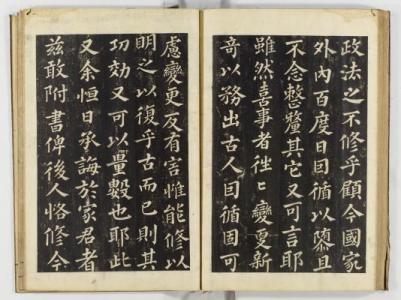 政法之不修乎顧今國家
外内百度日囙循以隳且
不念整釐其它又可言耶
雖然喜事者徃〻變更新
奇以務出古人囙循固可
慮變更反有害惟能修以
明之以復乎古而已則其
功効又可以量數也耶此
又余恒日承誨於家君者
兹敢附書俾後人恪修今